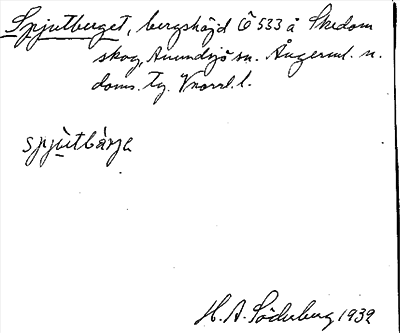 Spjutberget, bergshöjd Ö 533 å Skedom
skog, Anundsjö sn. Ångerml. n.
doms. Tg. Vnorrl. l.
spjùtbärje
H. A. Söderberg 1939